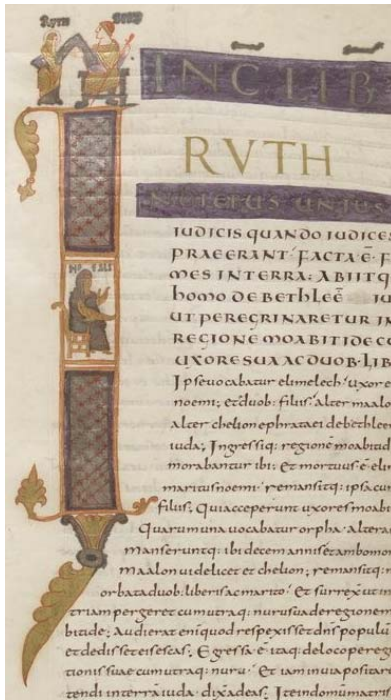 RVTH
BOOZ
INC̄ LIB
RVTH
IN DIEBUS UNIUS
IUDICIS QUANDO IUDICES
PRAEERANT· FACTA Ē· F
MES IN TERRA; ABIITQ
homo DE BEThLEĒ IU
UT PEREGRINARETUR IN
REGIONE MOABITIDE CU
UXORE SUA AC DUOB· LIB
Ipse uocabatur elimelech· uxor e
noemi; et duob· filiis· alter maalo
alter chelion ephrataei de bethlee
iuda; Ingressiq· regionē moabitid
morabantur ibi; Et mortuus ē eli
maritus noemi· remansitq· ipsa cum
filiis, Qui acceperunt uxores moabi
Quarum una uocabatur orpha· altera
manseruntq· ibi decem annis et ambo mo
maalon uidelicet et chelion; remansitq· m
orbata duob· liberis ac marito· Et surrexit ut in
triam pergeret cum utraq· nuru sua de regione m
bitide; Audierat enī quod respexisset dn̄s populū
et dedisset eis escas, Egressa ē itaq· de loco pere
tionis suae cum utraq· nuru· Et iam in uia posita
tendi in terrā iuda· dixit ad eas; Ite in domū mat